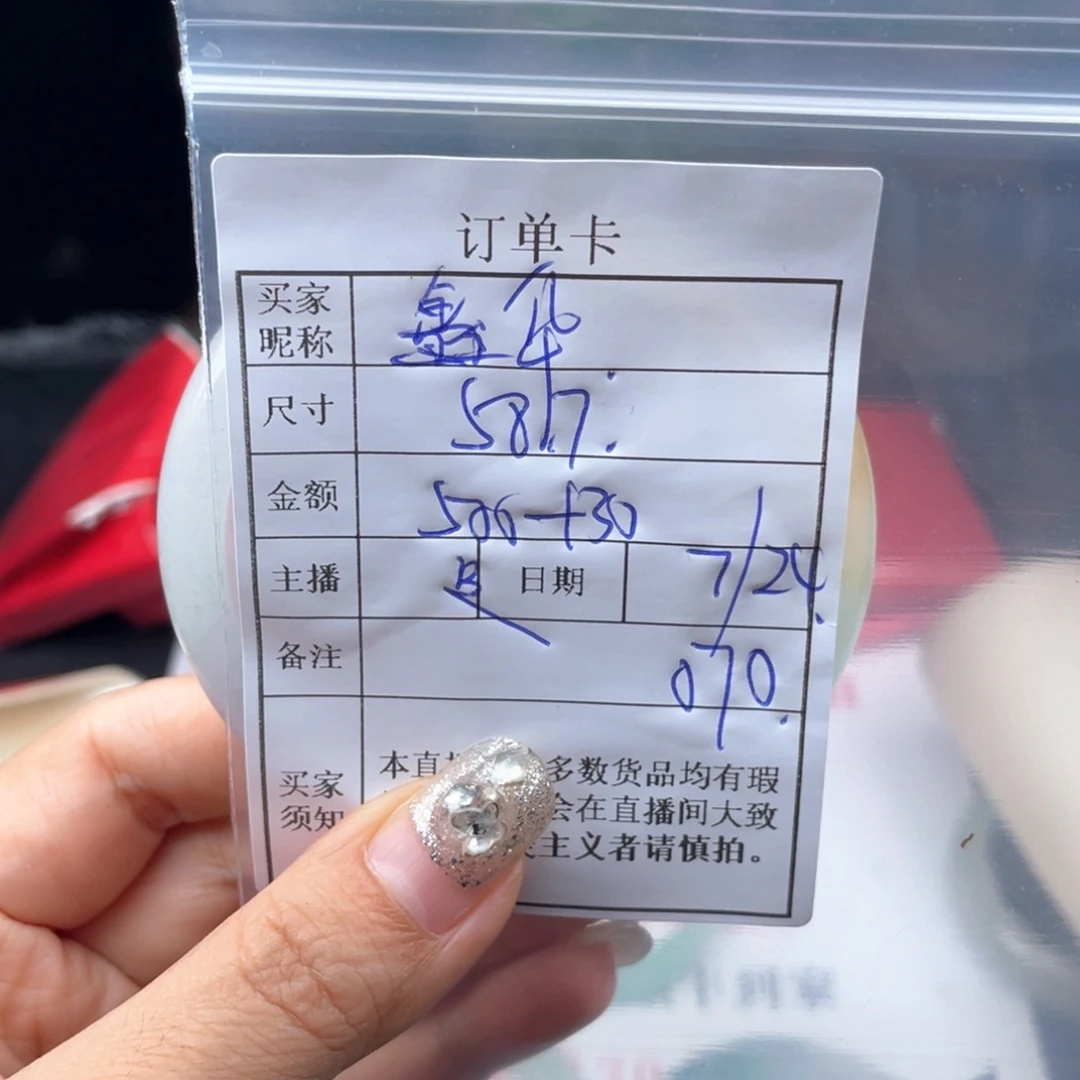 订单卡
买家昵称
尺寸 58.7.
金额 500+30
主播 日期 7/24.
备注 070.
买家须知 本直 多数货品均有瑕
会在直播间大致
主义者请慎拍。